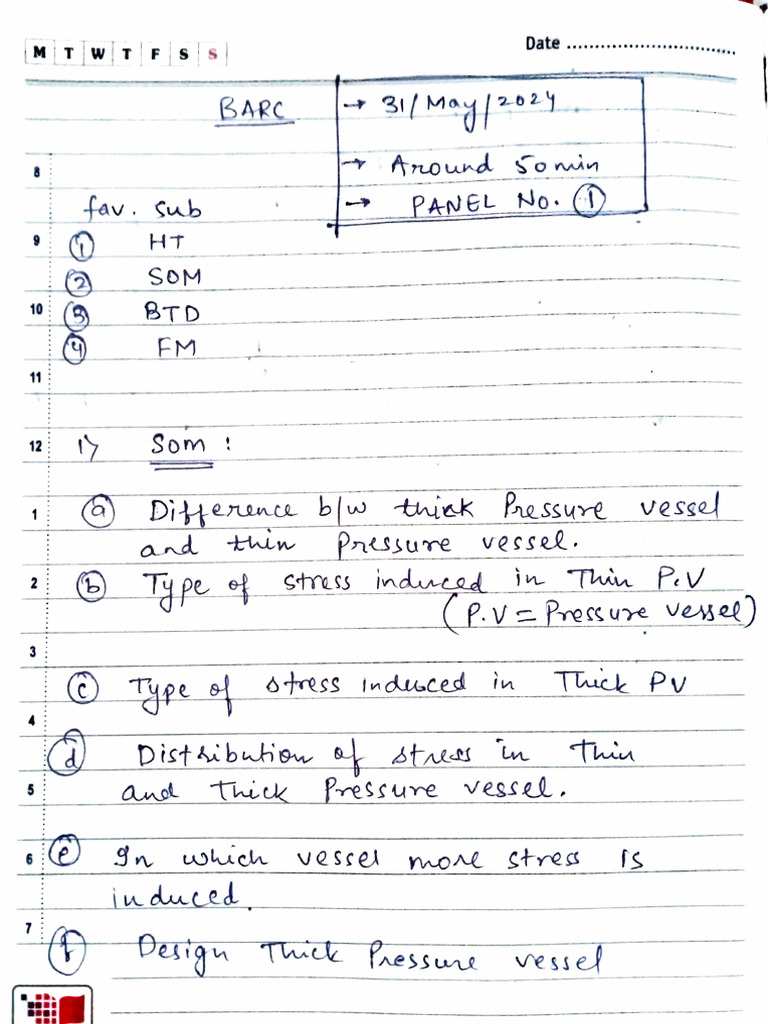 M T W T F S S
Date
BARC
→ 31/May/2024
→ Around 50 min
→ PANEL No. ①
8
fav. sub
9 ① HT
② SOM
10 ③ BTD
④ FM
11
12 1> Som :
1 ⓐ Difference b/w thick Pressure vessel
and thin pressure vessel.
2 ⓑ Type of stress induced in Thin P.V
(P.V = Pressure vessel)
3
ⓒ Type of stress induced in Thick PV
4
ⓓ Distribution of stress in Thin
5 and Thick Pressure vessel.
6 ⓔ In which vessel more stress is
induced.
7
ⓕ Design Thick Pressure vessel